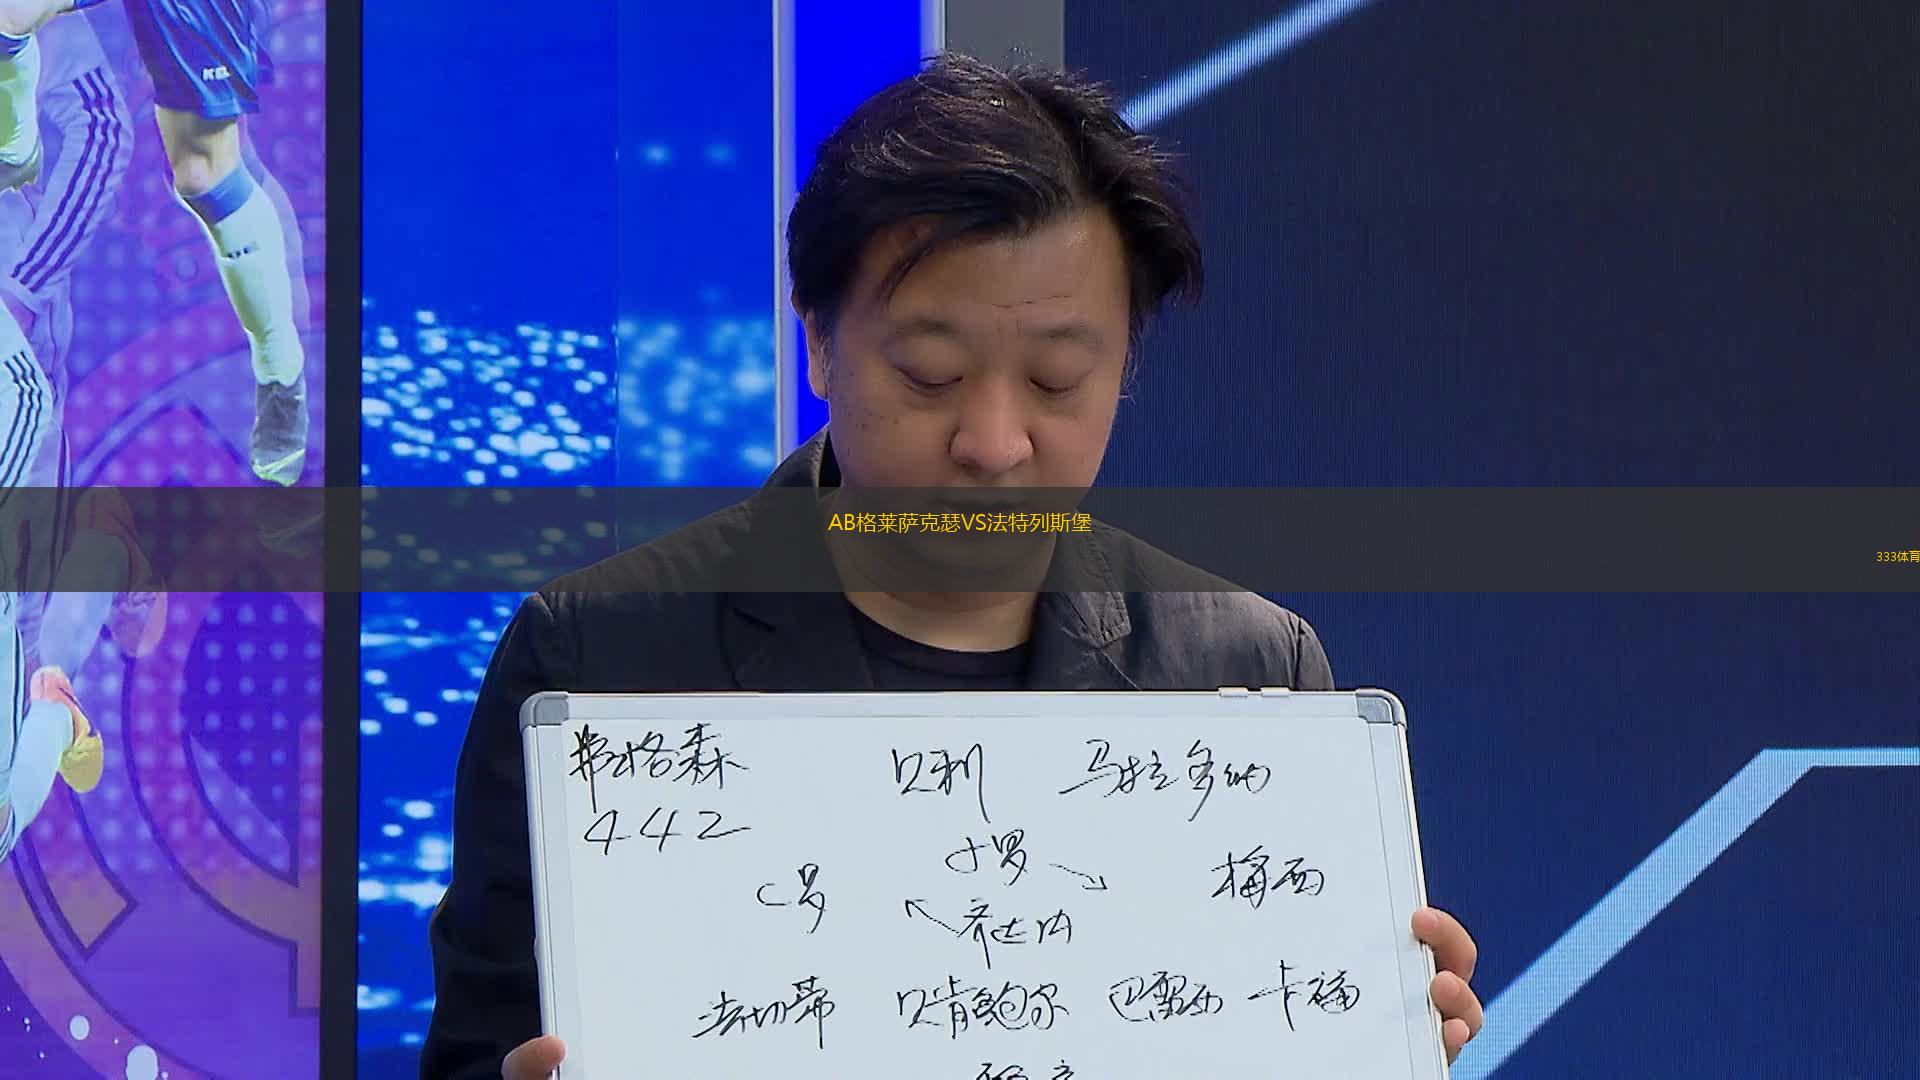 AB格莱萨克瑟VS法特列斯堡
333体育
弗格森 贝利 马拉多纳
442
小罗
C罗 梅西
齐达内
法切蒂 贝肯鲍尔 巴雷西 卡福